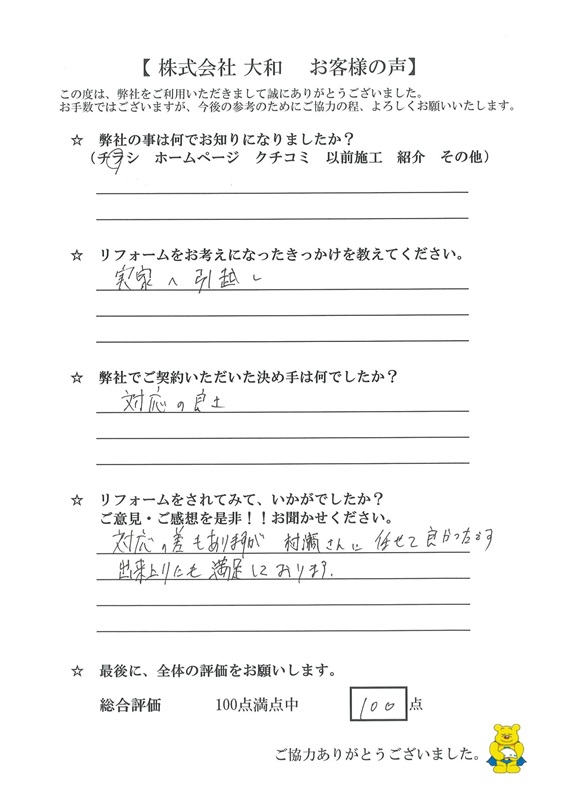 【 株式会社 大和　お客様の声】
この度は、弊社をご利用いただきまして誠にありがとうございました。
お手数ではございますが、今後の参考のためにご協力の程、よろしくお願いいたします。
☆　弊社の事は何でお知りになりましたか？
（チラシ　ホームページ　クチコミ　以前施工　紹介　その他）
☆　リフォームをお考えになったきっかけを教えてください。
実家へ引越し
☆　弊社でご契約いただいた決め手は何でしたか？
対応の良さ
☆　リフォームをされてみて、いかがでしたか？
ご意見・ご感想を是非！！お聞かせください。
対応の差もありますが 村瀬さんに 任せて良かったです
出来上りにも満足しております.
☆　最後に、全体の評価をお願いします。
総合評価　100点満点中　100 点
ご協力ありがとうございました。